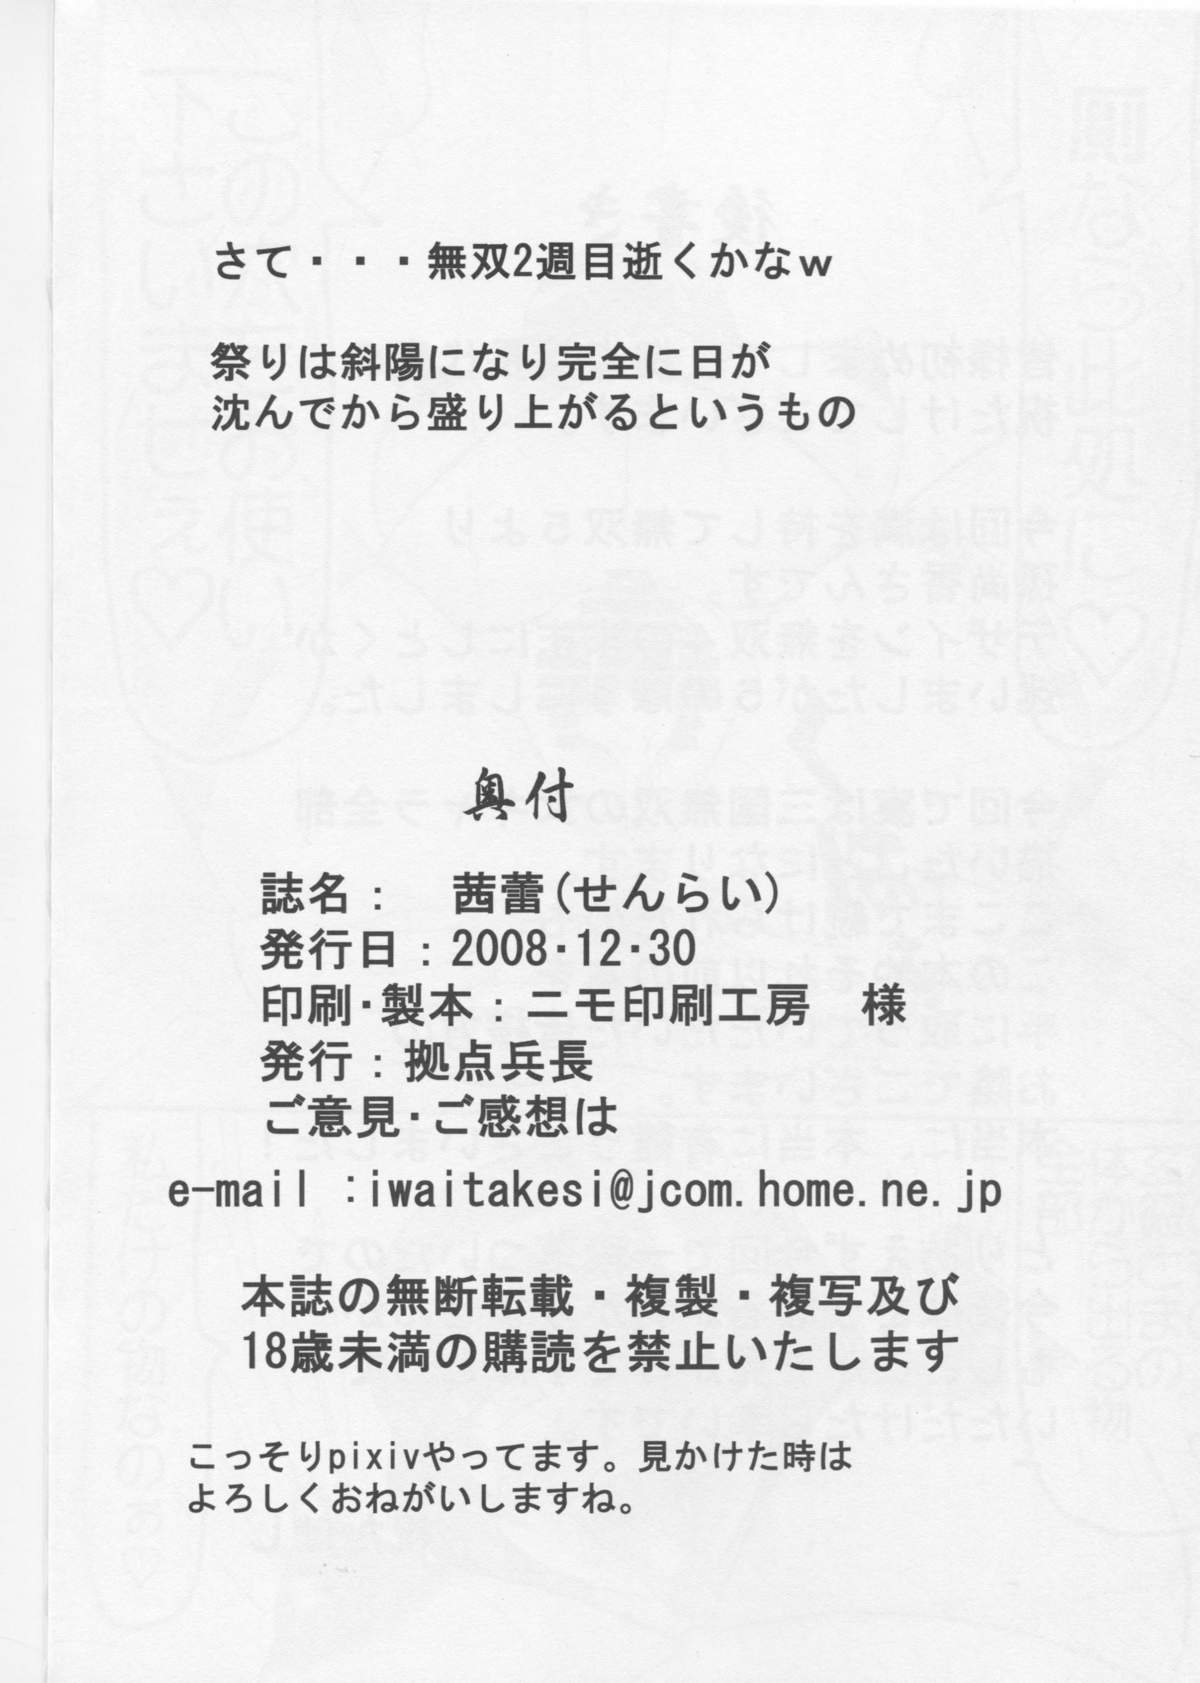 さて・・・無双2週目逝くかなｗ
祭りは斜陽になり完全に日が
沈んでから盛り上がるというもの
奥付
誌名：　茜蕾(せんらい)
発行日：2008・12・30
印刷・製本：ニモ印刷工房　様
発行：拠点兵長
ご意見・ご感想は
e-mail :iwaitakesi@jcom.home.ne.jp
本誌の無断転載・複製・複写及び
18歳未満の購読を禁止いたします
こっそりpixivやってます。見かけた時は
よろしくおねがいしますね。